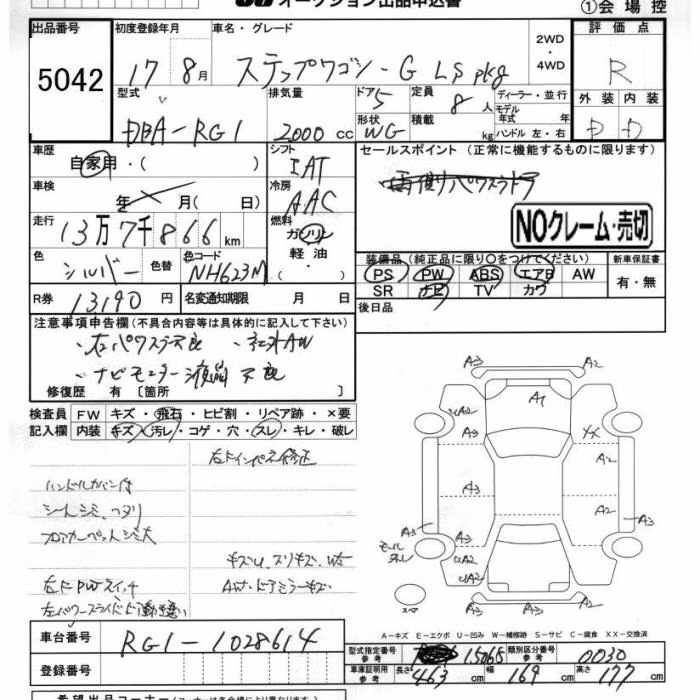 オークション出品申込書
①会場控
出品番号 初度登録年月 車名・グレード 2WD ・4WD 評価点
5042 17 8月 ステップワゴン-G LS pkg R
型式 排気量 ドア 5 定員 8人 ディーラー・並行 モデル年式 年 外装 内装
DBA-RG1 2000cc 形状 WG 積載 kg ハンドル 左・右 D D
車歴 自家用・( ) シフト IAT セールスポイント (正常に機能するものに限ります)
車検 年 月( 日) 冷房 AAC
NOクレーム・売切
走行 13万7千866km 燃料 ガソリン 軽油
色 シルバー 色替 色コード NH623M
装備品 (純正品に限り○をつけてください) 新車保証書
PS PW ABS エアB AW 有・無
SR ナビ TV カワ
R券 13190円 名変通知期限 月 日 後日品
注意事項申告欄(不具合内容等は具体的に記入して下さい)
・左パワスラ不良 ・社外AW
・ナビモニター液晶不良
修復歴 有 [箇所 ]
検査員 FW キズ・飛石・ヒビ割・リペア跡・×要
記入欄 内装 キズ・汚レ・コゲ・穴・スレ・キレ・破レ
左ドインパネ修正
ハンドルカバー付
シートシミ、ヘタリ
フロアカーペットシミ大
キズU、スリキズ、W5
左ドPWスイッチ AW・ドアミラーキズ
左パワースライドド動き悪い
A3 A2
A1
UA2 A3 XX A2
A3 A2
A3 A3
モール外し
UA2 A2
UA2
A3 A2
スペア
A-キズ E-エクボ U-凹み W-補修跡 S-サビ C-腐食 XX-交換済
車台番号 RG1-1028614
型式指定番号 参考 15065 類別区分番号 参考 0030
登録番号 車庫証明用 参考 長さ 463cm 幅 169cm 高さ 177cm
希望出品コーナー